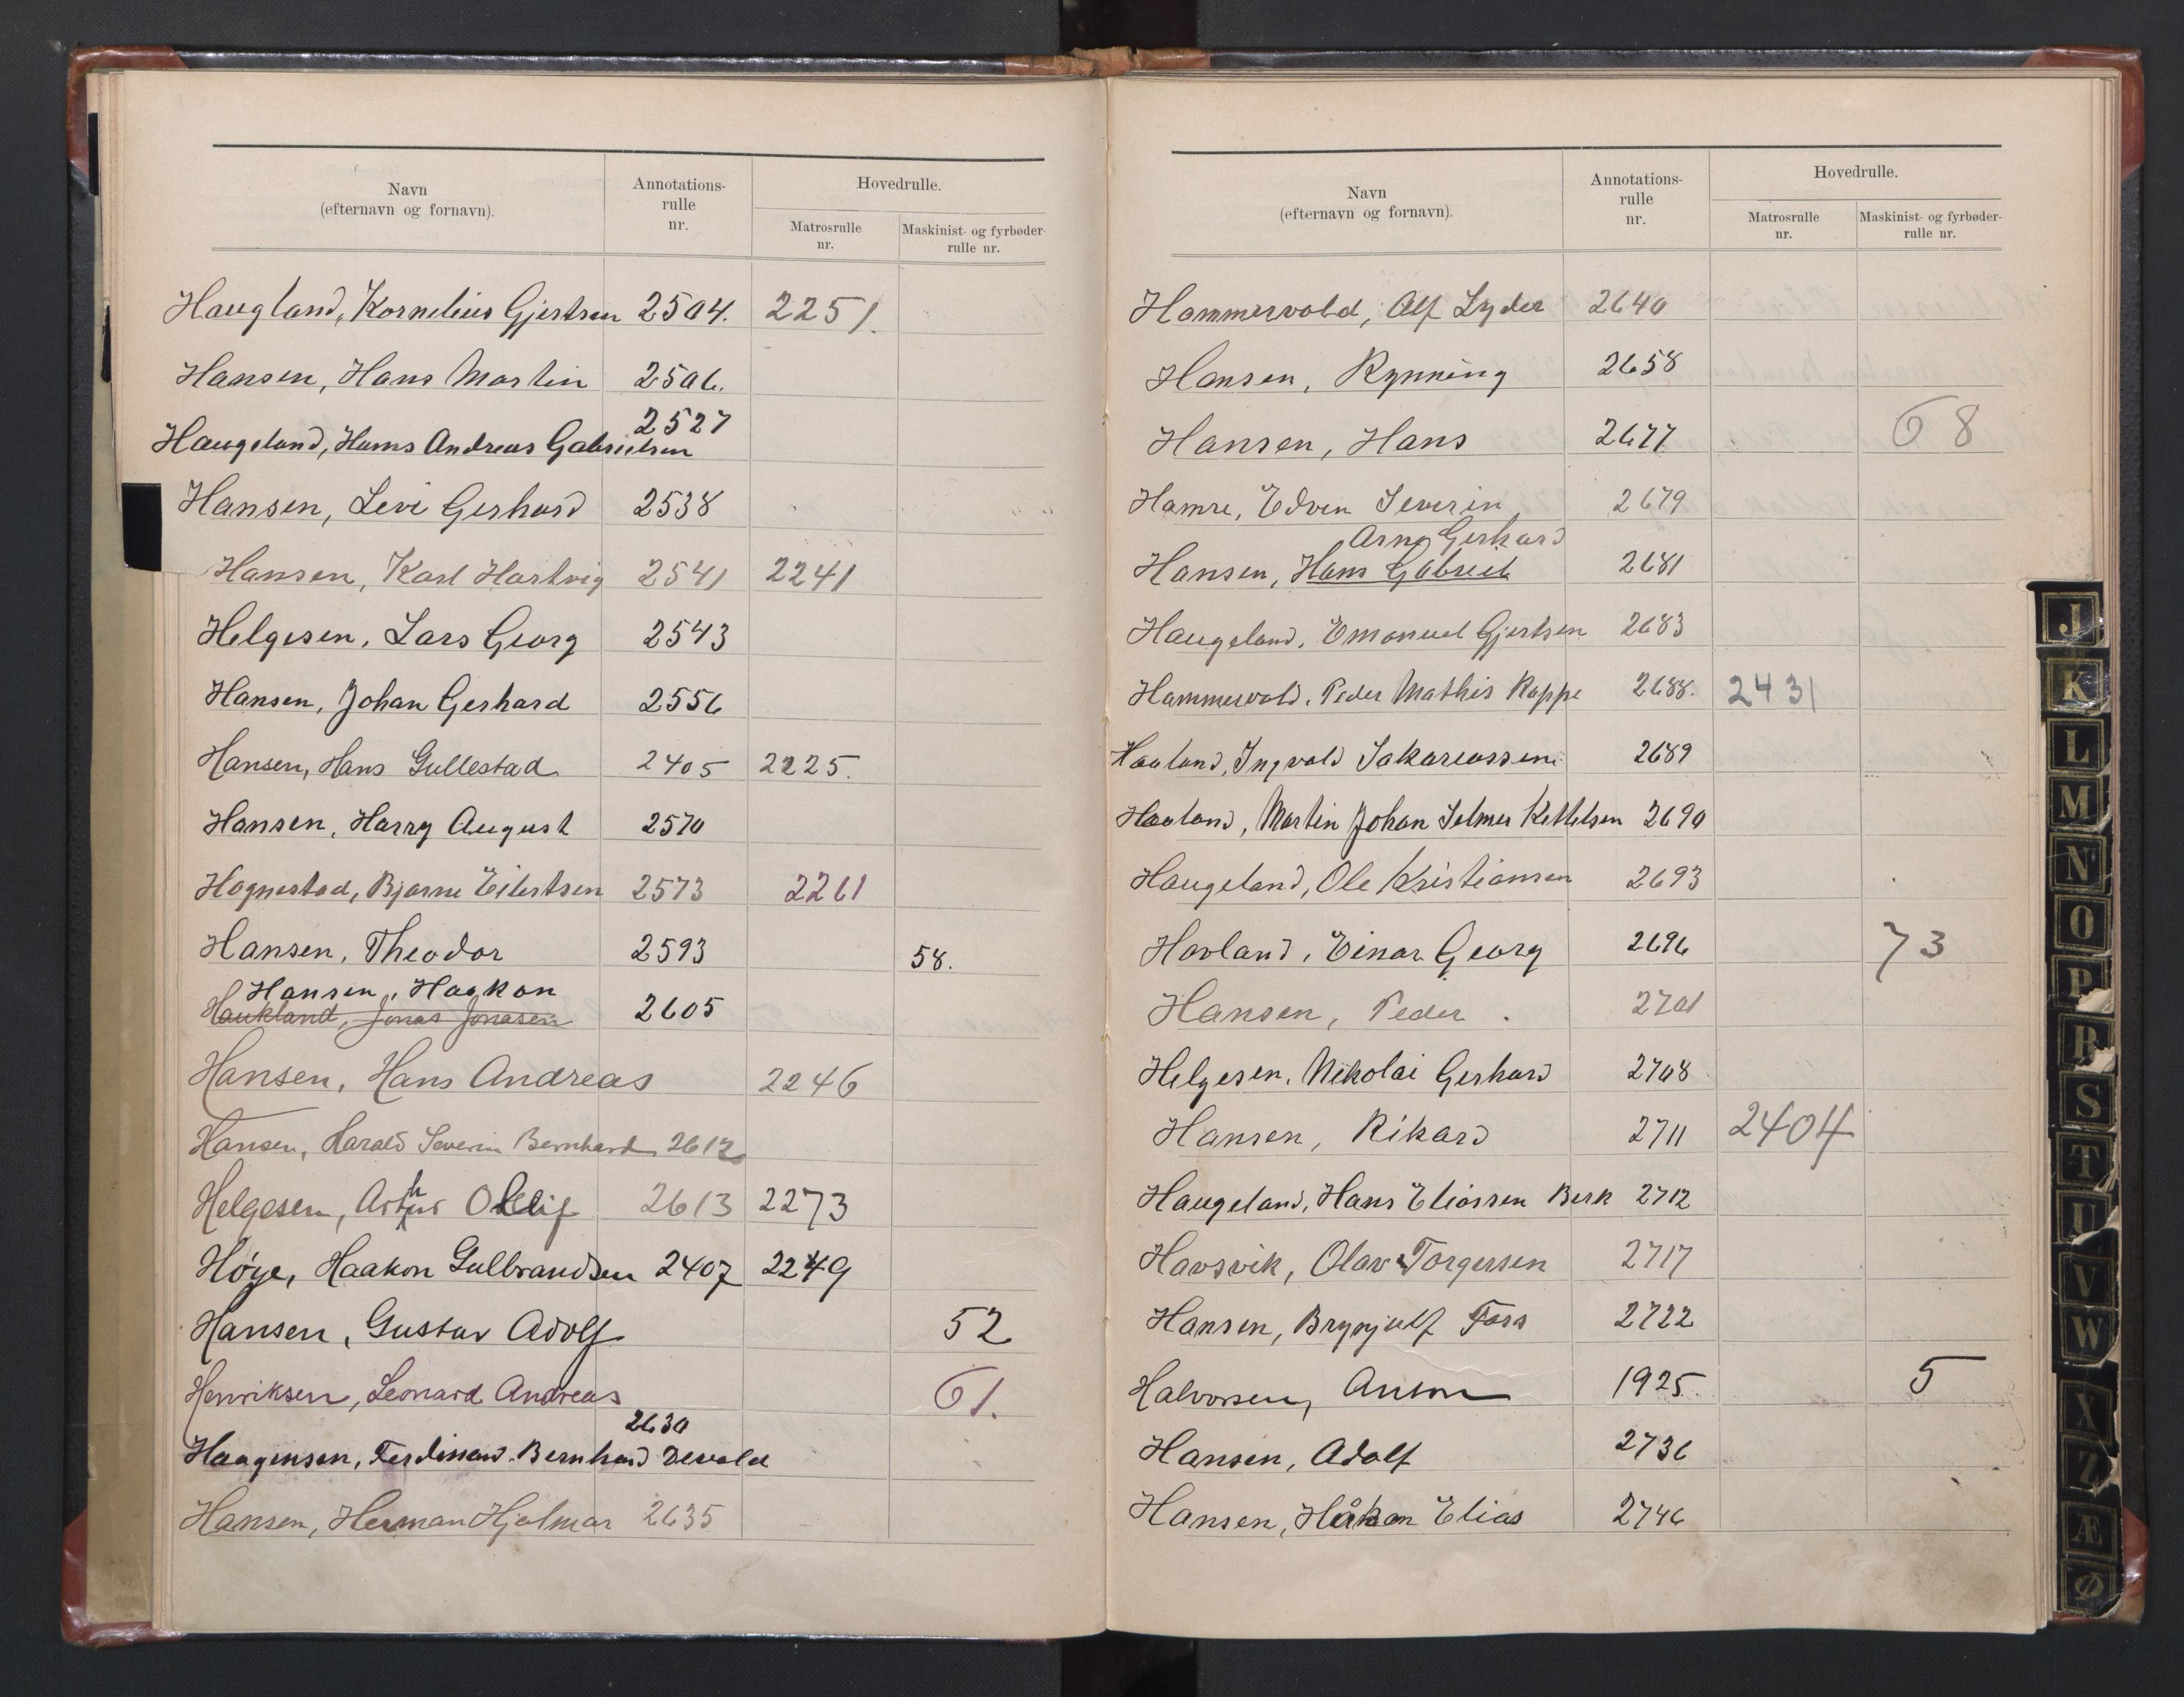 Navn
(efternavn og fornavn).
Annotations-
rulle
nr.
Hovedrulle.
Matrosrulle
nr.
Maskinist- og fyrbøder-
rulle nr.
Haugland, Kornelius Gjertsen 2504. 2251.
Hansen, Hans Martin 2506.
2527
Haugeland, Hans Andreas Gabrielsen
Hansen, Levi Gerhard 2538
Hansen, Karl Hartvig 2541 2241
Helgesen, Lars Georg 2543
Hansen, Johan Gerhard 2556
Hansen, Hans Gullestad 2405 2225.
Hansen, Harry August 2570
Hognestad, Bjarne Eilertsen 2573 2261
Hansen, Theodor 2593 58.
Hansen, Haakon
Haukland, Jonas Jonasen 2605
Hansen, Hans Andreas 2246
Hansen, Harald Severin Bernhard 2612
Helgesen, Arthur 2613 2273
Høye, Haakon Gulbrandsen 2407 2249
Hansen, Gustav Adolf 52
Henriksen, Leonard Andreas 61.
2630
Haagensen, Ferdinand Bernhard Devold
Hansen, Herman Hjalmar 2635
Navn
(efternavn og fornavn).
Annotations-
rulle
nr.
Hovedrulle.
Matrosrulle
nr.
Maskinist- og fyrbøder-
rulle nr.
Hammervold, Alf Lyder 2640
Hansen, Rynning 2658
Hansen, Hans 2677 68
Hamre, Edvin Severin 2679
Arne Gerhard
Hansen, Hans Gabriel 2681
Haugeland, Emanuel Gjertsen 2683
Hammervold, Peder Mathis Rappe 2688. 2431
Haaland, Ingvald Sakariassen 2689
Haaland, Martin Johan Selmer Ketilsen 2690
Haugeland, Ole Kristiansen 2693
Hovland, Einar Georg 2696 73
Hansen, Peder. 2701
Helgesen, Nikolai Gerhard 2708
Hansen, Rikard 2711 2404
Haugeland, Hans Eliassen Berk 2712
Havsvik, Olav Torgersen 2717
Hansen, Brynjulf Foss 2722
Halvorsen, Anton 1925 5
Hansen, Adolf 2736
Hansen, Håkon Elias 2746
J
K
L
M
N
O
P
R
S
T
U
V
W
X
Z
Æ
Ø